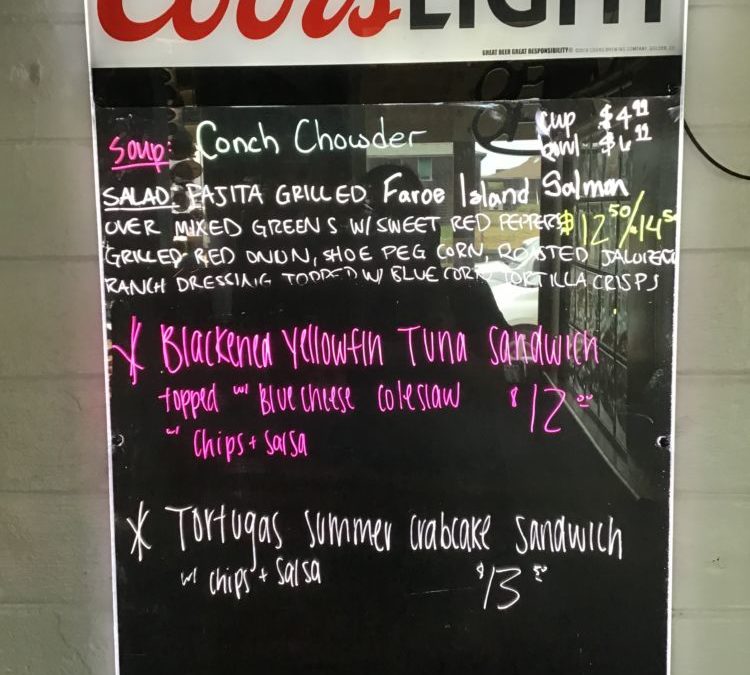 Coors LIGHT
GREAT BEER GREAT RESPONSIBILITY®
Soup: Conch Chowder cup $4.99
bowl $6.99
SALAD: FAJITA GRILLED Faroe Island Salmon
OVER MIXED GREENS W/ SWEET RED PEPPERS $12.50/14.50
GRILLED RED ONION, SHOE PEG CORN, ROASTED
RANCH DRESSING TOPPED W/ BLUE CORN TORTILLA CRISPS
* Blackened Yellowfin Tuna Sandwich
topped w/ Blue cheese coleslaw $12.00
w/ chips + salsa
* Tortugas summer crabcake sandwich
w/ chips + salsa $13.50